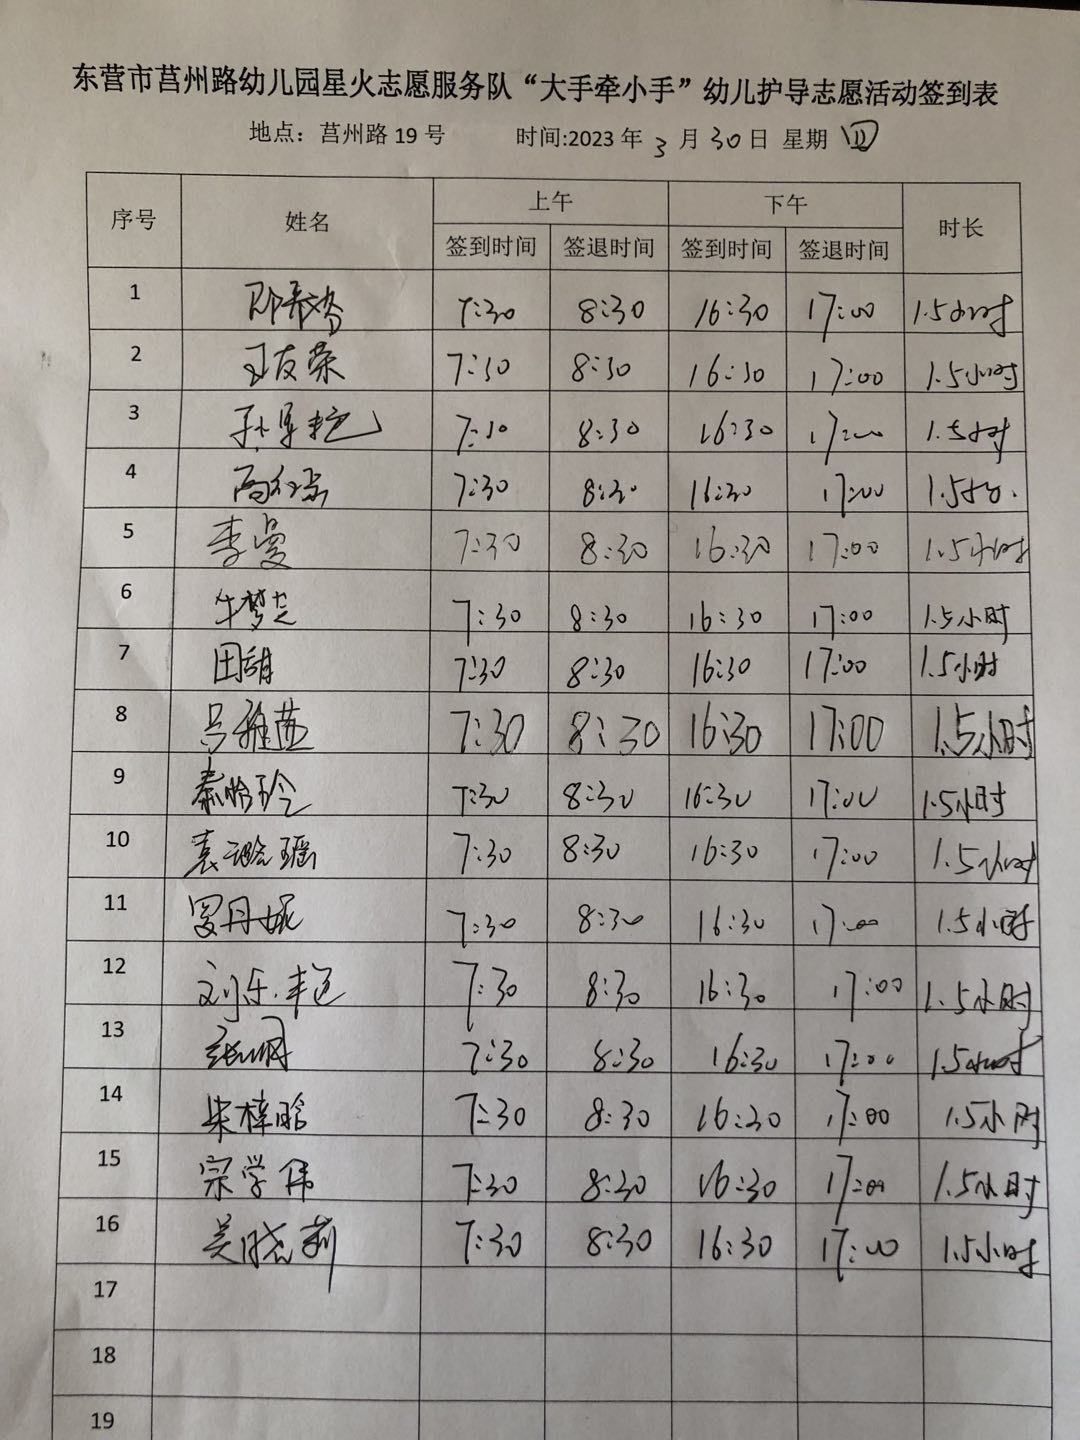 东营市莒州路幼儿园星火志愿服务队“大手牵小手”幼儿护导志愿活动签到表
地点：莒州路 19 号 时间:2023 年 3 月 30 日 星期 四
序号 姓名 上午 下午 时长
签到时间 签退时间 签到时间 签退时间
1 7:30 8:30 16:30 17:00 1.5小时
2 王友荣 7:30 8:30 16:30 17:00 1.5小时
3 孙军艳 7:30 8:30 16:30 17:00 1.5小时
4 7:30 8:30 16:30 17:00 1.5小时.
5 李曼 7:30 8:30 16:30 17:00 1.5小时
6 牛梦芝 7:30 8:30 16:30 17:00 1.5小时
7 田甜 7:30 8:30 16:30 17:00 1.5小时
8 吕雅茹 7:30 8:30 16:30 17:00 1.5小时
9 秦怡玲 7:30 8:30 16:30 17:00 1.5小时
10 袁 瑶 7:30 8:30 16:30 17:00 1.5小时
11 罗丹妮 7:30 8:30 16:30 17:00 1.5小时
12 刘乐艳 7:30 8:30 16:30 17:00 1.5小时
13 7:30 8:30 16:30 17:00 1.5小时
14 柴梓晗 7:30 8:30 16:30 17:00 1.5小时
15 宗学伟 7:30 8:30 16:30 17:00 1.5小时
16 吴晓莉 7:30 8:30 16:30 17:00 1.5小时
17
18
19